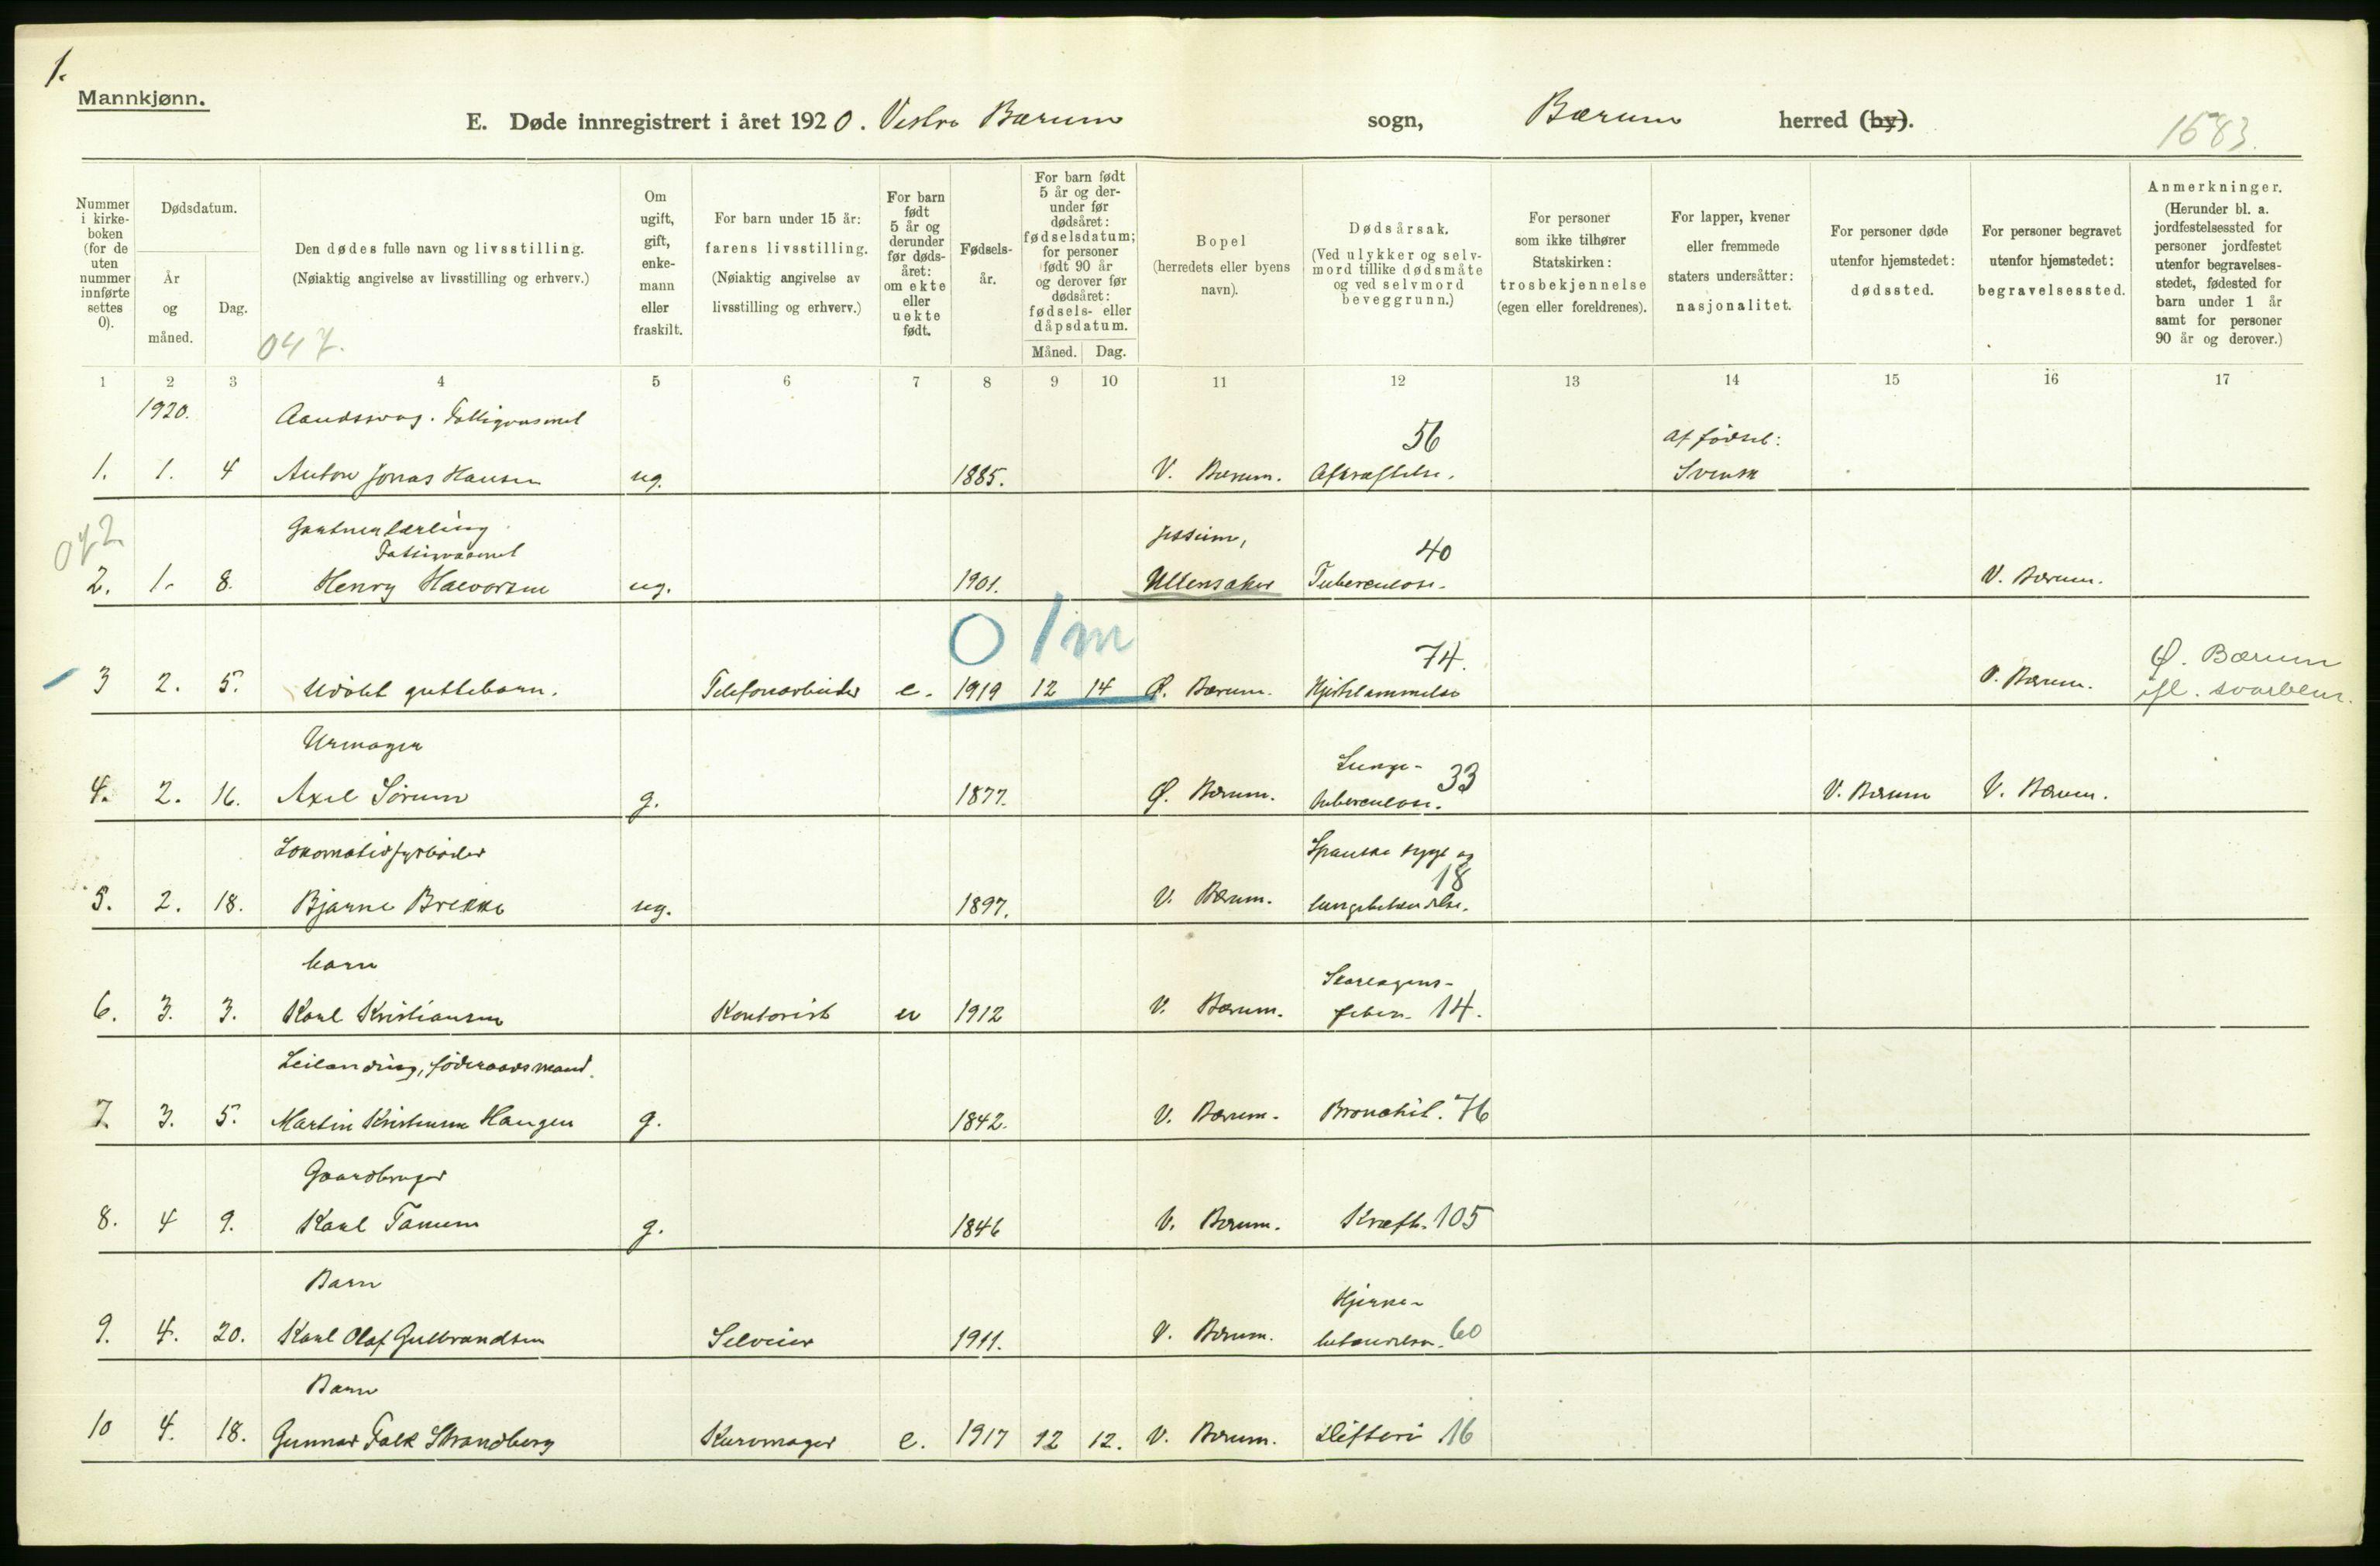 1.
Mannkjønn.
E. Døde innregistrert i året 1920. Vestre Bærum sogn, Bærum herred (by).
1583.
Nummer i kirke-boken (for de uten nummer innførte settes 0).
Dødsdatum.
År og måned.
Dag.
Den dødes fulle navn og livsstilling.
(Nøiaktig angivelse av livsstilling og erhverv.)
047.
Om ugift, gift, enke-mann eller fraskilt.
For barn under 15 år:
farens livsstilling.
(Nøiaktig angivelse av livsstilling og erhverv.)
For barn født 5 år og derunder før døds-året: om ekte eller uekte født.
Fødsels-år.
For barn født 5 år og der-under før dødsåret: fødselsdatum; for personer født 90 år og derover før dødsåret: fødsels- eller dåpsdatum.
Måned. Dag.
Bopel
(herredets eller byens navn).
Dødsårsak.
(Ved ulykker og selv-mord tillike dødsmåte og ved selvmord beveggrunn.)
For personer som ikke tilhører Statskirken: trosbekjennelse (egen eller foreldrenes).
For lapper, kvener eller fremmede staters undersåtter: nasjonalitet.
For personer døde utenfor hjemstedet: dødssted.
For personer begravet utenfor hjemstedet: begravelsessted.
Anmerkninger.
(Herunder bl. a. jordfestelsessted for personer jordfestet utenfor begravelses-stedet, fødested for barn under 1 år samt for personer 90 år og derover.)
1 2 3 4 5 6 7 8 9 10 11 12 13 14 15 16 17
1920.
Aandssvag. Fattigunsmet
56
Af fødsel:
1. 1. 4 Anton Jonas Hansen ug. 1885. V. Bærum. Afkræftelse. Svensk
072
Gartnerlærling
Jessum,
40
2. 1. 8. Henry Halvorsen ug. 1901. Ullensaker Tuberculose. V. Bærum.
0 1m
74.
Ø. Bærum
3 2. 5. Udøbt guttebarn. Telefonarbeider e. 1919 12 14 Ø. Bærum. Hjertelammelse V. Bærum.
Urmager
Lunge-
33
4. 2. 16. Axel Sørum g. 1877. Ø. Bærum. tuberculose. V. Bærum V. Bærum.
Lokomotivfyrbøder
Spanske syge og
18
5. 2. 18. Bjarne Brekke ug. 1897. V. Bærum. lungebetændelse.
barn
Skarlagens-
6. 3. 3. Karl Kristiansen Kontorist e 1912 V. Bærum. feber. 14.
Leilænding, føderaadsmand.
7. 3. 5. Martin Kristensen Haugen g. 1842. V. Bærum. Bronchit. 76
Gaardbruger
8. 4 9. Karl Tanum g. 1846 V. Bærum. Kræft. 105
Barn
Hjerne-
9. 4. 20. Karl Olaf Gulbrandsen Selveier 1911. V. Bærum. betændelse. 60
Barn
10 4. 18. Gunnar Falk Strandberg Kurvmager e. 1917 12 12. V. Bærum. Difteri 16